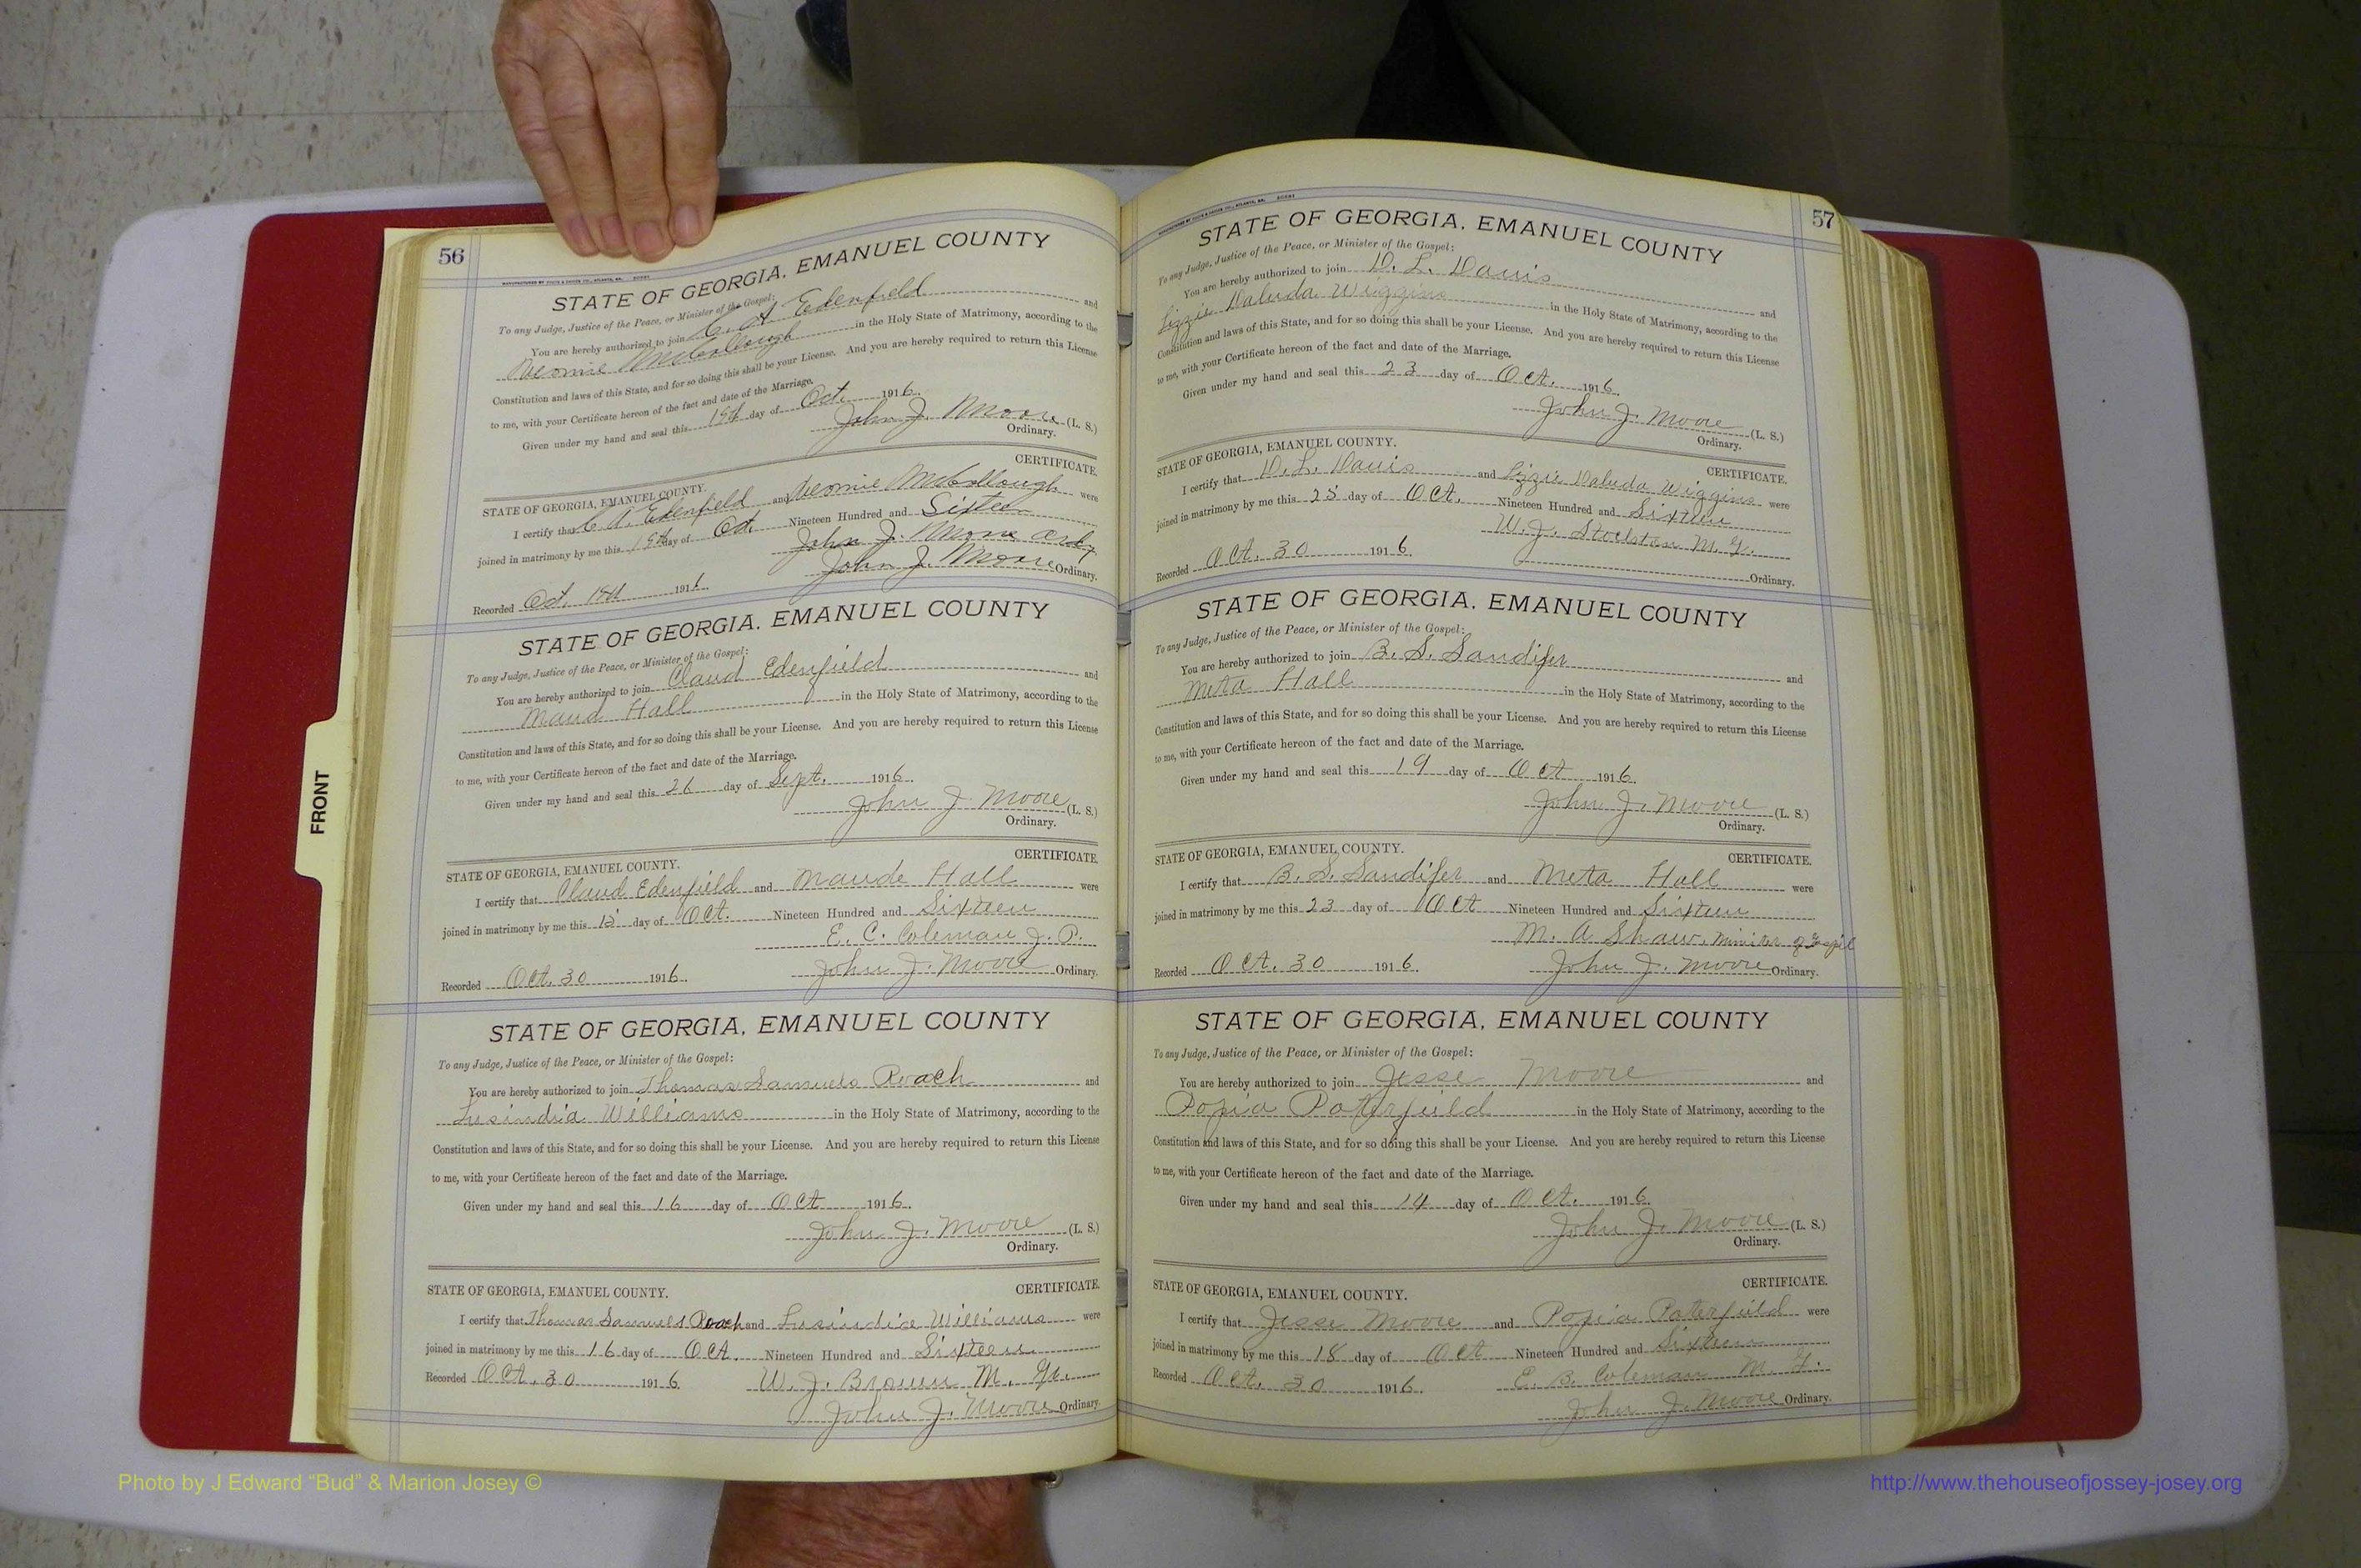 56
STATE OF GEORGIA, EMANUEL COUNTY
To any Judge, Justice of the Peace, or Minister of the Gospel:
You are hereby authorized to join C. A. Edenfield and
McCollough in the Holy State of Matrimony, according to the
Constitution and laws of this State, and for so doing this shall be your License. And you are hereby required to return this License
to me, with your Certificate hereon of the fact and date of the Marriage.
Given under my hand and seal this day of Oct. 1916.
John J. Moore (L. S.)
Ordinary.
CERTIFICATE.
STATE OF GEORGIA, EMANUEL COUNTY.
I certify that C. A. Edenfield and McCollough were
joined in matrimony by me this day of Oct. Nineteen Hundred and Sixteen
John J. Moore Ordy
John J. Moore Ordinary.
Recorded Oct. 1916
STATE OF GEORGIA, EMANUEL COUNTY
To any Judge, Justice of the Peace, or Minister of the Gospel:
You are hereby authorized to join Claud Edenfield and
Maud Hall in the Holy State of Matrimony, according to the
Constitution and laws of this State, and for so doing this shall be your License. And you are hereby required to return this License
to me, with your Certificate hereon of the fact and date of the Marriage.
Given under my hand and seal this 26 day of Sept. 1916.
John J Moore (L. S.)
Ordinary.
CERTIFICATE.
STATE OF GEORGIA, EMANUEL COUNTY.
I certify that Claud Edenfield and Maude Hall were
joined in matrimony by me this 15 day of Oct. Nineteen Hundred and Sixteen
E. C. Coleman J. P.
Recorded Oct. 30 1916. John J. Moore Ordinary.
STATE OF GEORGIA, EMANUEL COUNTY
To any Judge, Justice of the Peace, or Minister of the Gospel:
You are hereby authorized to join Thomas Samuels Roach and
Lusindia Williams in the Holy State of Matrimony, according to the
Constitution and laws of this State, and for so doing this shall be your License. And you are hereby required to return this License
to me, with your Certificate hereon of the fact and date of the Marriage.
Given under my hand and seal this 16 day of Oct 1916.
John J. Moore (L. S.)
Ordinary.
CERTIFICATE.
STATE OF GEORGIA, EMANUEL COUNTY.
I certify that Thomas Samuels Roach and Lusindia Williams were
joined in matrimony by me this 16 day of Oct. Nineteen Hundred and Sixteen
Recorded Oct. 30 1916. W. J. Brown M. G.
John J. Moore Ordinary.
57
STATE OF GEORGIA, EMANUEL COUNTY
To any Judge, Justice of the Peace, or Minister of the Gospel:
You are hereby authorized to join D. L. Davis and
Lizzie Daluda Wiggins in the Holy State of Matrimony, according to the
Constitution and laws of this State, and for so doing this shall be your License. And you are hereby required to return this License
to me, with your Certificate hereon of the fact and date of the Marriage.
Given under my hand and seal this 23 day of Oct. 1916.
John J. Moore (L. S.)
Ordinary.
CERTIFICATE.
STATE OF GEORGIA, EMANUEL COUNTY.
I certify that D. L. Davis and Lizzie Daluda Wiggins were
joined in matrimony by me this 25 day of Oct. Nineteen Hundred and Sixteen
W. J. M. G.
Recorded Oct. 30 1916. Ordinary.
STATE OF GEORGIA, EMANUEL COUNTY
To any Judge, Justice of the Peace, or Minister of the Gospel:
You are hereby authorized to join B. S. Sandifer and
Meta Hall in the Holy State of Matrimony, according to the
Constitution and laws of this State, and for so doing this shall be your License. And you are hereby required to return this License
to me, with your Certificate hereon of the fact and date of the Marriage.
Given under my hand and seal this 19 day of Oct 1916.
John J. Moore (L. S.)
Ordinary.
CERTIFICATE.
STATE OF GEORGIA, EMANUEL COUNTY.
I certify that B. S. Sandifer and Meta Hall were
joined in matrimony by me this 23 day of Oct Nineteen Hundred and Sixteen
M. A Shaw, Minister of Gospel
Recorded Oct. 30 1916. John J. Moore Ordinary.
STATE OF GEORGIA, EMANUEL COUNTY
To any Judge, Justice of the Peace, or Minister of the Gospel:
You are hereby authorized to join Jesse Moore and
Popia Paterfield in the Holy State of Matrimony, according to the
Constitution and laws of this State, and for so doing this shall be your License. And you are hereby required to return this License
to me, with your Certificate hereon of the fact and date of the Marriage.
Given under my hand and seal this 14 day of Oct. 1916.
John J. Moore (L. S.)
Ordinary.
CERTIFICATE.
STATE OF GEORGIA, EMANUEL COUNTY.
I certify that Jesse Moore and Popia Paterfield were
joined in matrimony by me this 18 day of Oct Nineteen Hundred and Sixteen
Recorded Oct. 30 1916. E. B. Coleman M. G.
John J. Moore Ordinary.
FRONT
Photo by J Edward “Bud” & Marion Josey ©
http://www.thehouseofjossey-josey.org